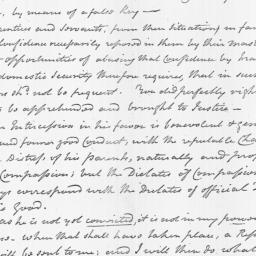 by means of a false Key —
Servants, from their situations in fam
Confidence necessarily reposed in them by their Mast
opportunities of abusing that Confidence by
domestic Security therefore requires, that in such
shd. not be frequent. You did perfectly right
to be apprehended and brought to Justice —
Intercession in his favor is benevolent & gen
good Conduct, with the reputable Cha
Distress of his parents, naturally
Compassion; but the Dictates of Compassion
correspond with the dictates of official
is Good.
as he is not yet convicted, it is not in my power
so. when that shall have taken place, a Rep
will be sent to me; and I will then do what